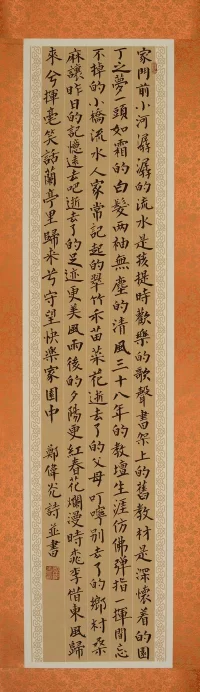 家門前小河潺潺的流水是孩提時歡樂的歌聲書架上的舊教材是深懷着的園
丁之夢一頭如霜的白髮兩袖無塵的清風三十八年的教壇生涯仿佛彈指一揮間忘
不掉的小橋流水人家常記起的翠竹禾苗菜花逝去了的父母叮嚀別去了的鄉村桑
麻讓昨日的記憶遠去吧逝去了的足迹更美風雨後的夕陽更紅春花爛漫時桃李借東風歸
來兮揮毫笑話蘭亭里歸來兮守望快樂家園中
鄭偉光詩並書